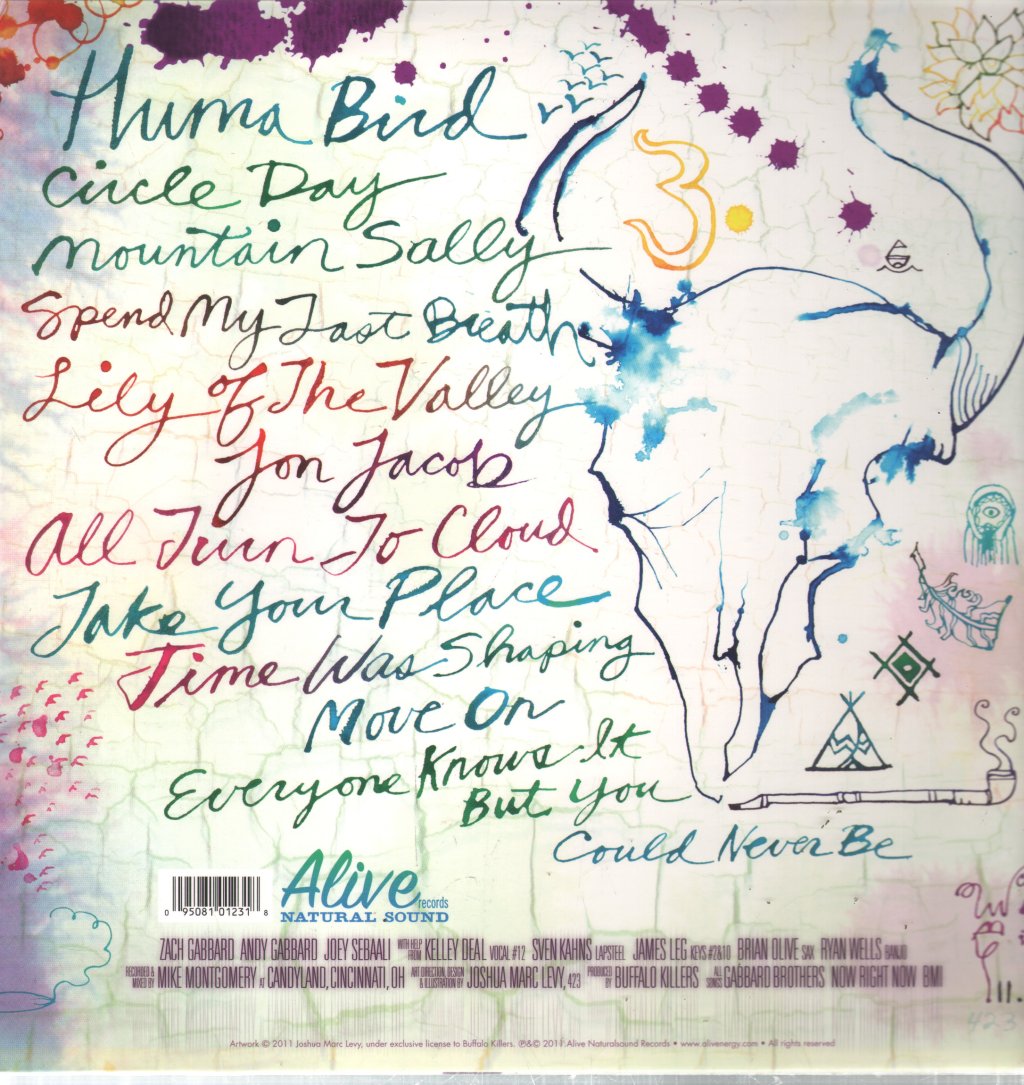 Huma Bird
Circle Day
Mountain Sally
Spend My Last Breath
Lily of The Valley
Jon Jacob
All Turn To Cloud
Take Your Place
Time Was Shaping
Move On
Everyone Knows It
But You
Could Never Be
Alive records
NATURAL SOUND
0 95081 01231 8
ZACH GABBARD ANDY GABBARD JOEY SEBAALI WITH HELP FROM KELLEY DEAL VOCAL #12 SVEN KAHNS LAPSTEEL JAMES LEG KEYS #2&10 BRIAN OLIVE SAX RYAN WELLS BANJO
RECORDED & MIXED BY MIKE MONTGOMERY AT CANDYLAND, CINCINNATI, OH ART DIRECTION, DESIGN & ILLUSTRATION BY JOSHUA MARC LEVY, 423 PRODUCED BY BUFFALO KILLERS ALL SONGS GABBARD BROTHERS NOW RIGHT NOW BMI
423
Artwork © 2011 Joshua Marc Levy, under exclusive license to Buffalo Killers. ℗&© 2011 Alive Naturalsound Records • www.alivenergy.com • All rights reserved